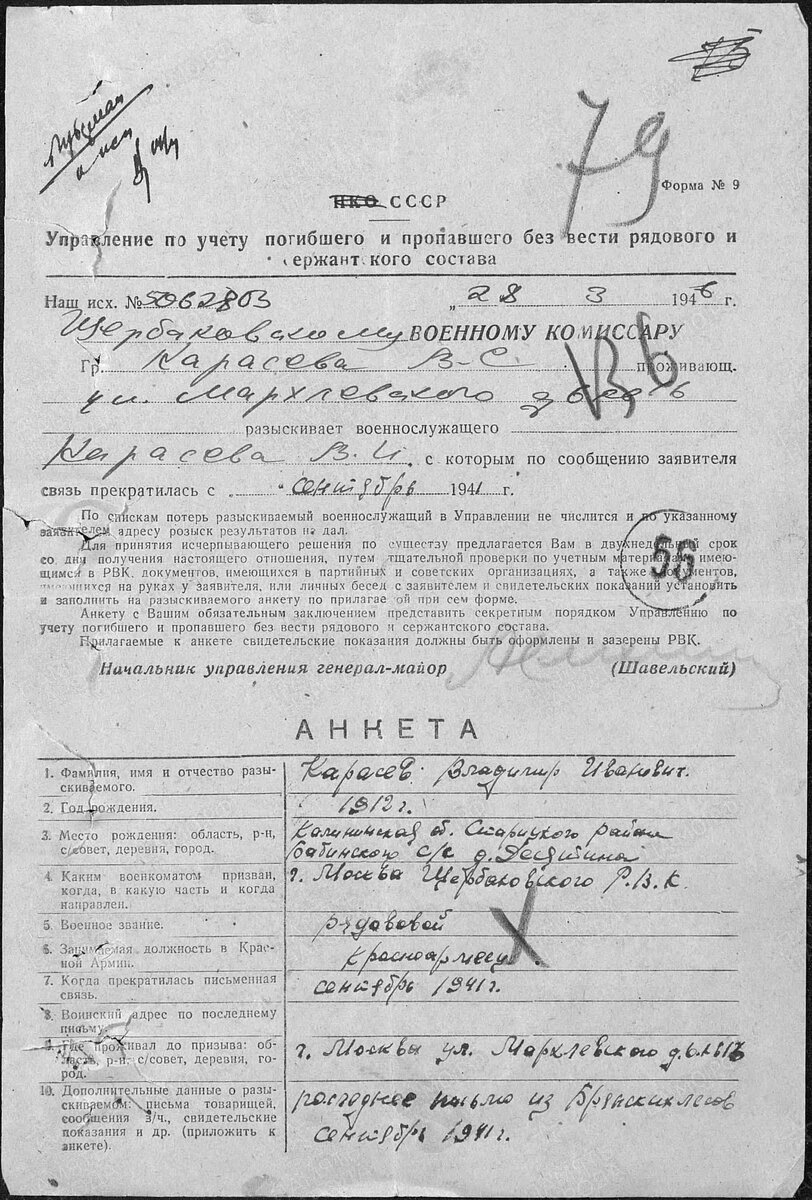 79
Форма № 9
НКО СССР
Управление по учету погибшего и пропавшего без вести рядового и
сержантского состава
Наш исх. № „ 28 3 1946 г.
Щербаковскому ВОЕННОМУ КОМИССАРУ
Гр. Карасева В-С. проживающ.
ул. Мархлевского
разыскивает военнослужащего
Карасева В.И. с которым по сообщению заявителя
связь прекратилась с „ “ сентябрь 1941 г.
По спискам потерь разыскиваемый военнослужащий в Управлении не числится и по указанному
заявителем адресу розыск результатов не дал.
Для принятия исчерпывающего решения по существу предлагается Вам в двухнедельный срок
со дня получения настоящего отношения, путем тщательной проверки по учетным материалам имею-
щимся в РВК, документов, имеющихся в партийных и советских организациях, а также документов,
имеющихся на руках у заявителя, или личных бесед с заявителем и свидетельских показаний установить
и заполнить на разыскиваемого анкету по прилагаемой при сем форме.
Анкету с Вашим обязательным заключением представить секретным порядком Управлению по
учету погибшего и пропавшего без вести рядового и сержантского состава.
Прилагаемые к анкете свидетельские показания должны быть оформлены и заверены РВК.
56
Начальник управления генерал-майор (Шавельский)
АНКЕТА
1. Фамилия, имя и отчество разы-
скиваемого.
Карасев Владимир Иванович.
2. Год рождения.
1912 г.
3. Место рождения: область, р-н,
с/совет, деревня, город.
Калининская об. Старицкого район
бабинского с/с д. Десятина
4. Каким военкоматом призван,
когда, в какую часть и когда
направлен.
г. Москва Щербаковского Р.В.К.
5. Военное звание.
рядовой
6. Занимаемая должность в Крас-
ной Армии.
Красноармеец.
7. Когда прекратилась письменная
связь.
сентябрь 1941 г.
8. Воинский адрес по последнему
письму.
9. Где проживал до призыва: об-
ласть, р-н, с/совет, деревня, го-
род.
г. Москвы ул. Мархлевского
10. Дополнительные данные о разы-
скиваемом: письма товарищей,
сообщения в/ч., свидетельские
показания и др. (приложить к
анкете).
письмо из Брянских лесов
сентябрь 1941 г.